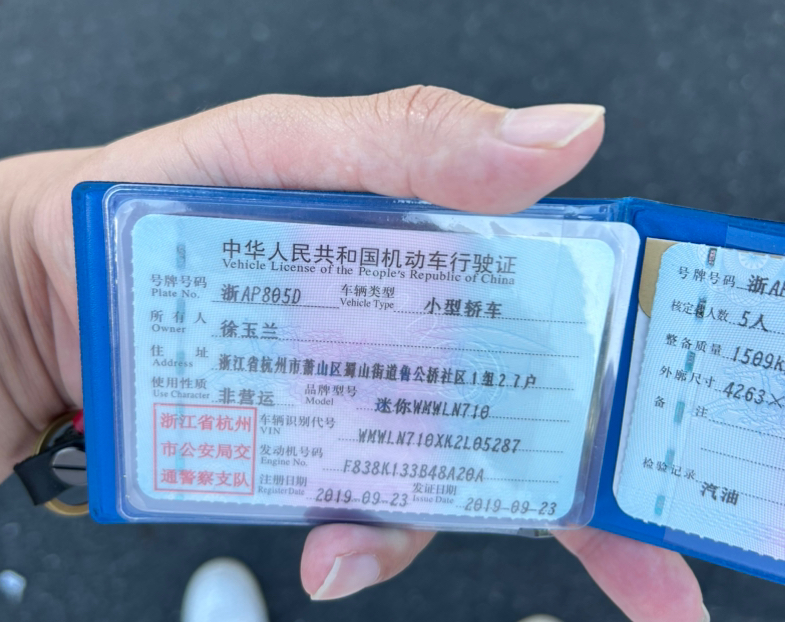 中华人民共和国机动车行驶证
Vehicle License of the People's Republic of China
号牌号码 浙AP805D 车辆类型 小型轿车
Plate No. Vehicle Type
所有人 徐玉兰
Owner
住址 浙江省杭州市萧山区蜀山街道鲁公桥社区1组27户
Address
使用性质 非营运 品牌型号 迷你WMWLN710
Use Character Model
浙江省杭州
市公安局交
通警察支队
车辆识别代号 WMWLN710XK2L05287
VIN
发动机号码 F838K133B48A20A
Engine No.
注册日期 2019-09-23 发证日期 2019-09-23
Register Date Issue Date
号牌号码 浙A
核定载人数 5人
整备质量 1509k
外廓尺寸 4263×
备注
检验记录
汽油